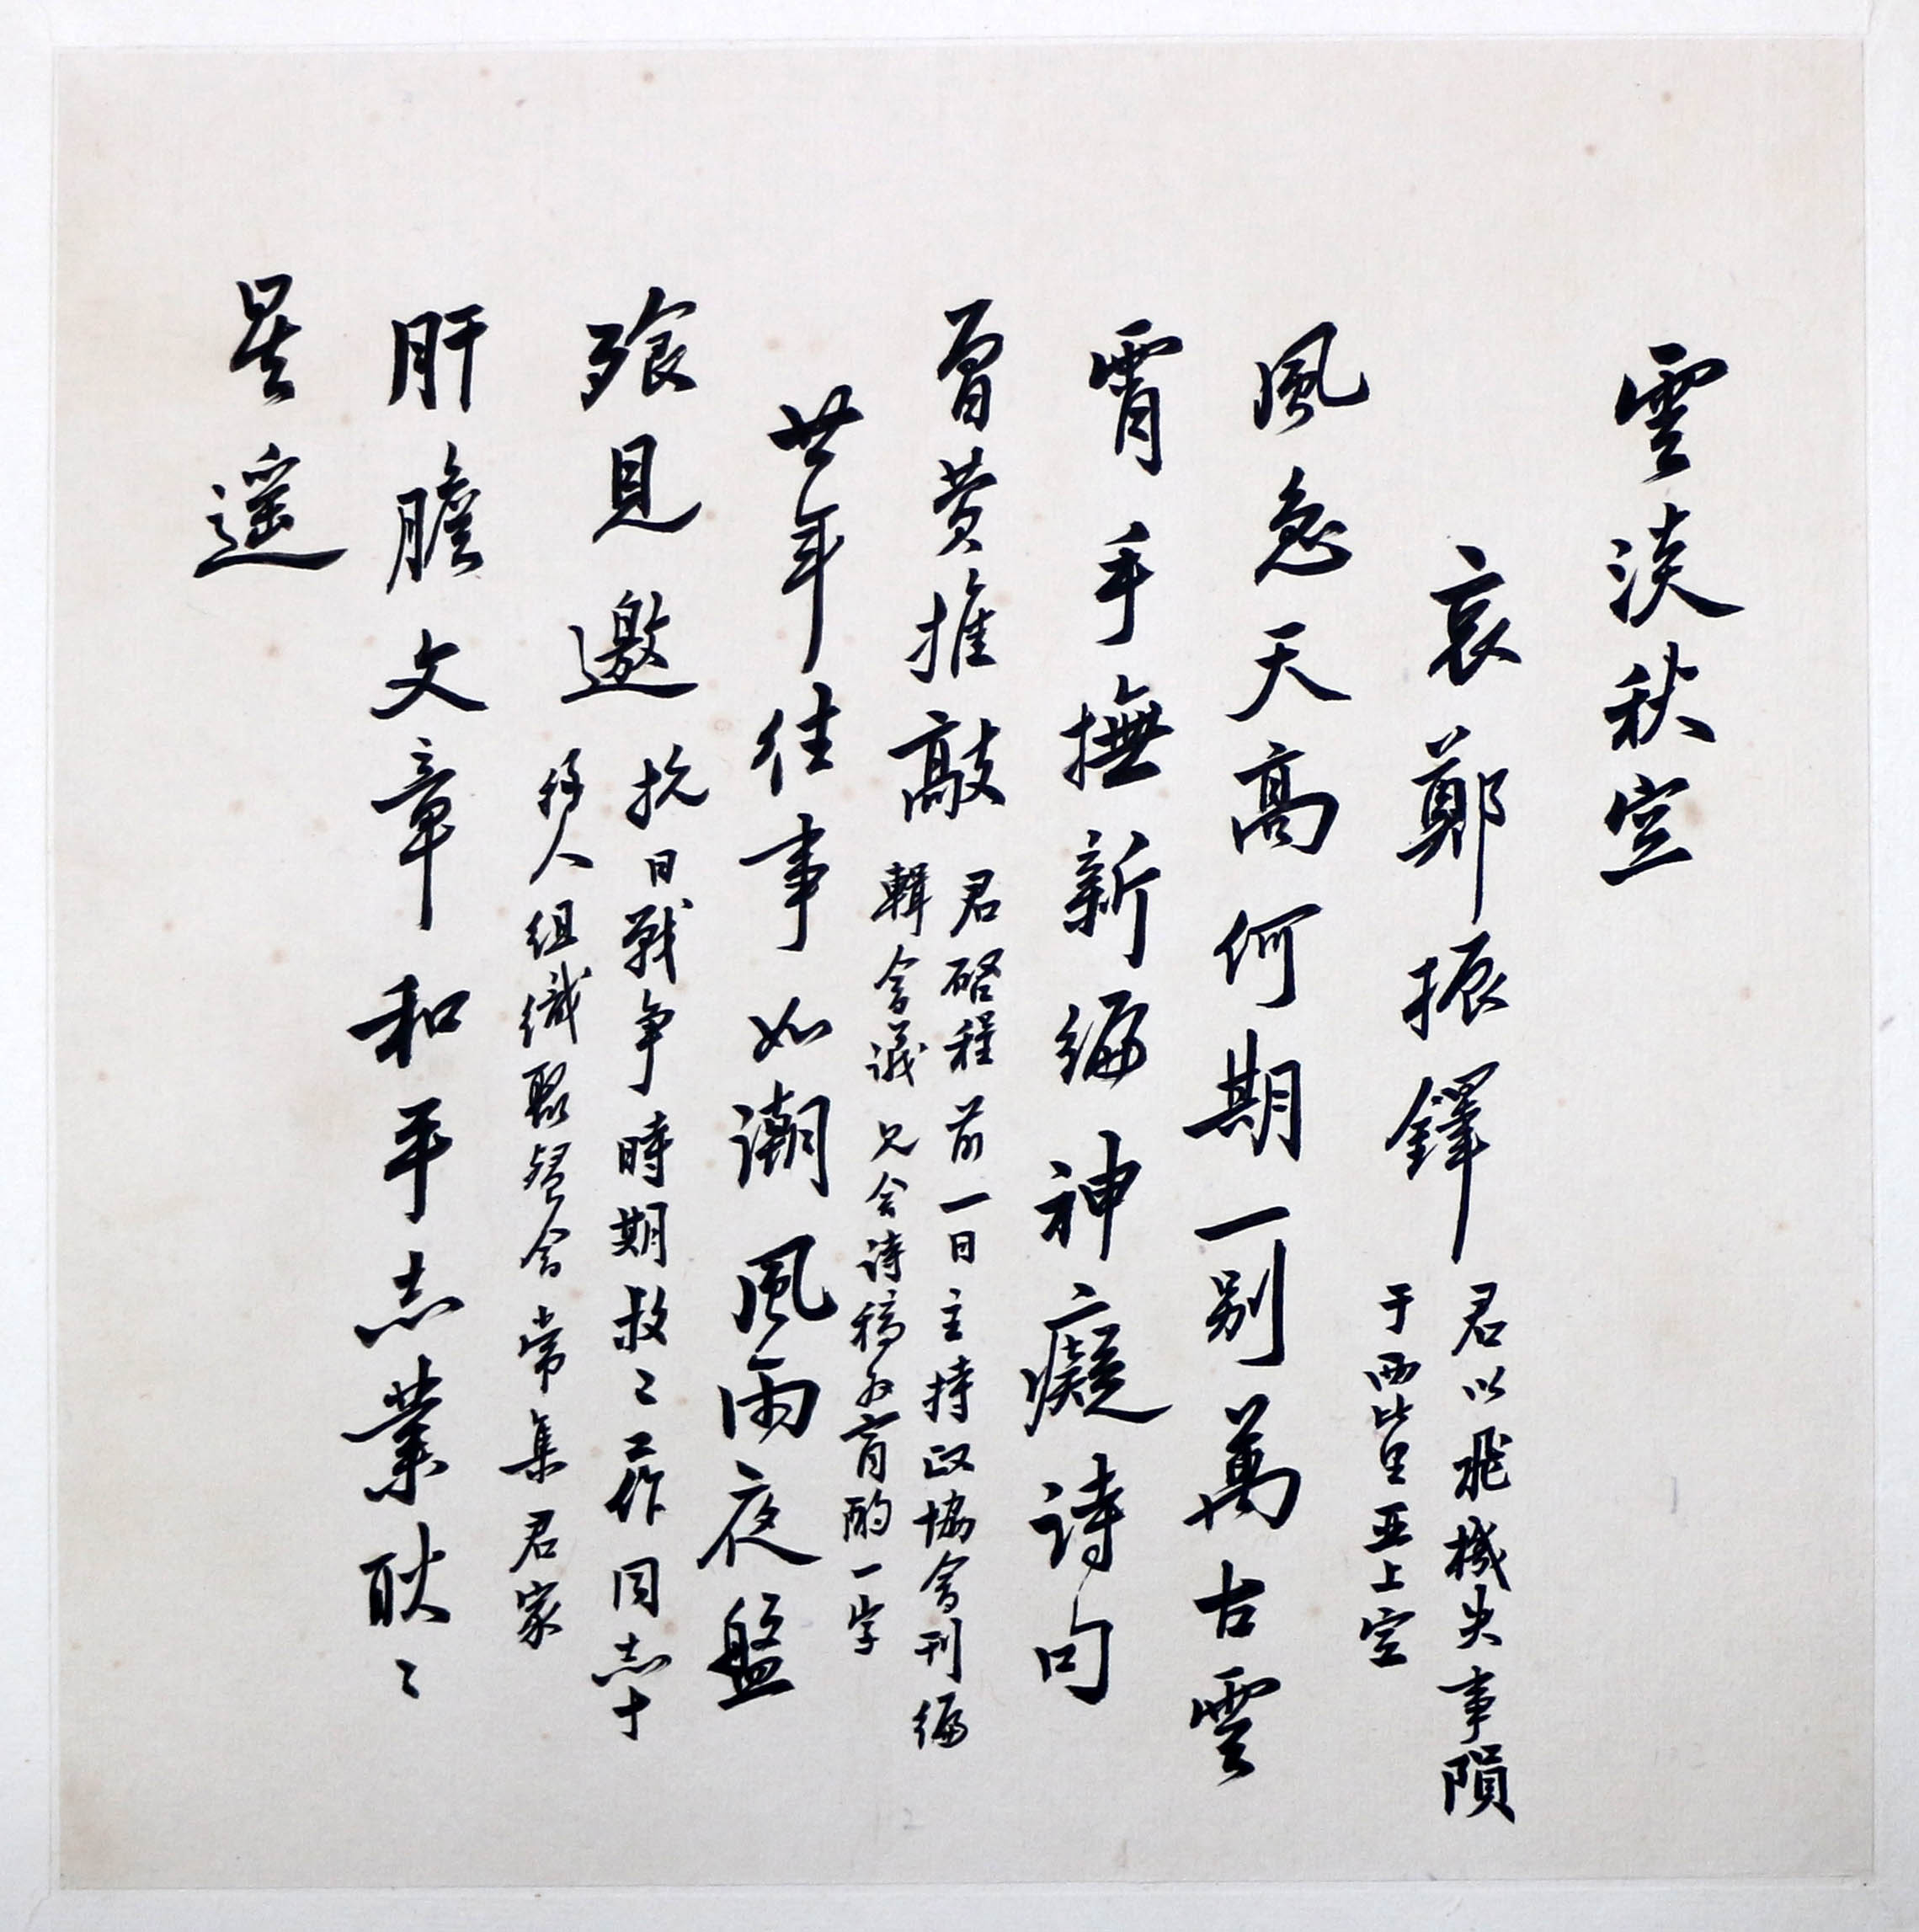 雲淡秋空
哀鄭振鐸
君以飛機失事隕
于西比里亚上空
風急天高何期一别萬古雲
霄手撫新編神癡詩句
曾費推敲
君啓程前一日主持政協會刊編
輯會議兄会诗稿为育酌一字
廿年往事如潮風雨夜盤
飱見邀
抗日戰争時期救々工作同志十
许人组織聚餐会常集君家
肝膽文章和平志業耿々
星遥